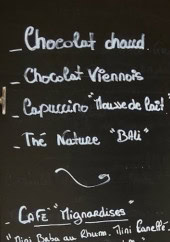 _ Chocolat chaud.
_ Chocolat Viennois
_ Capuccino "Mousse de lait"
_ Thé Nature "BALI"
_ CAFÉ "Mignardises"
"Mini Baba au Rhum. Mini Canelé